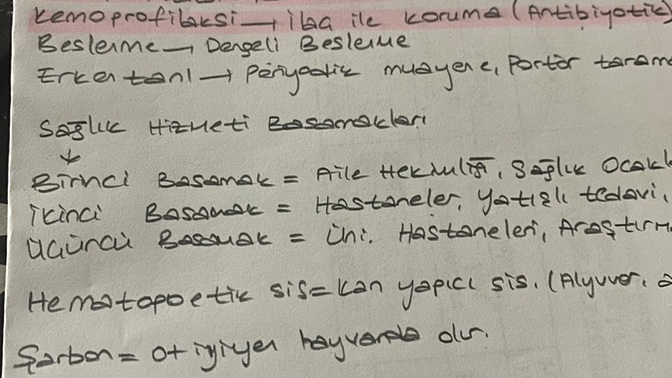 Kemoprofilaksi → ilaç ile koruma (Antibiyotik)
Beslenme → Dengeli Beslenme
Erken tanı → Periyodik muayene, Portör taram
Sağlık Hizmeti Basamakları
↓
Birinci Basamak = Aile Hekimliği, Sağlık Ocakl
İkinci Basamak = Hastaneler, Yatışlı tedavi,
Üçüncü Basamak = Üni. Hastaneleri, Araştırm
Hematopoetik sis = Kan yapıcı sis. (Alyuvar,
Şarbon = Ot yiyen hayvanda olur.